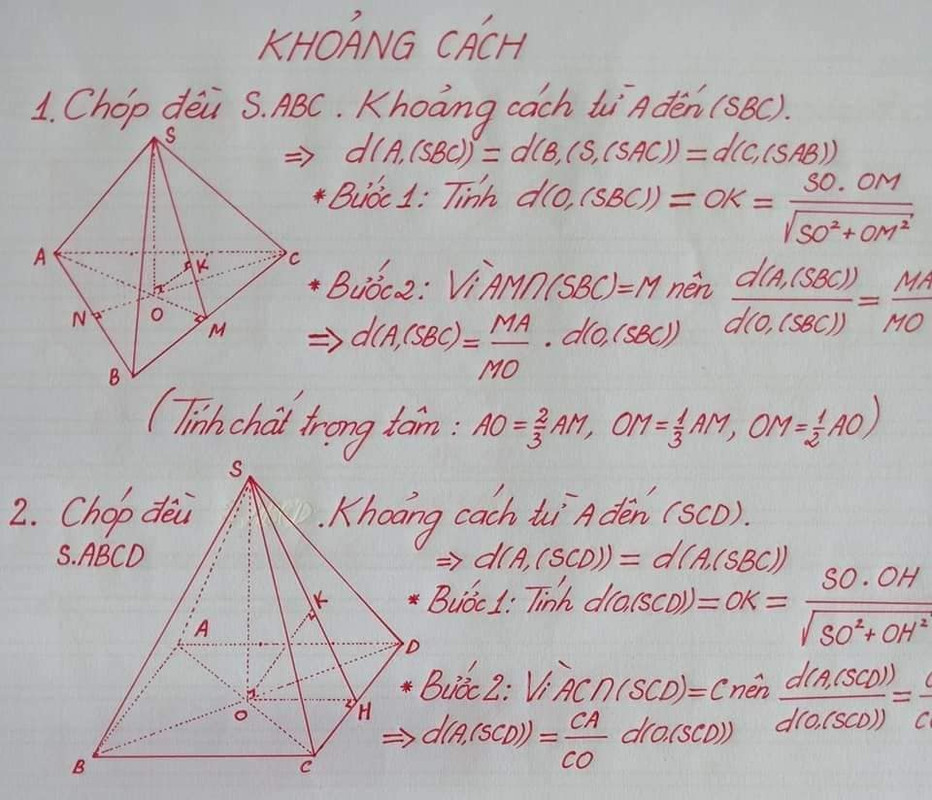 KHOẢNG CÁCH
1. Chóp đều S.ABC. Khoảng cách từ A đến (SBC).
⇒ d(A,(SBC)) = d(B,(S,(SAC)) = d(C,(SAB))
* Bước 1: Tính d(O,(SBC)) = OK = SO.OM / √SO²+OM²
* Bước 2: Vì AM∩(SBC)=M nên d(A,(SBC)) / d(O,(SBC)) = MA / MO
⇒ d(A,(SBC) = MA / MO . d(O,(SBC))
S
A
C
K
N
O
M
B
(Tính chất trọng tâm: AO = 2/3 AM, OM = 1/3 AM, OM = 1/2 AO)
2. Chóp đều . Khoảng cách từ A đến (SCD).
S.ABCD
⇒ d(A,(SCD)) = d(A,(SBC))
* Bước 1: Tính d(O,(SCD)) = OK = SO.OH / √SO²+OH²
* Bước 2: Vì AC∩(SCD)=C nên d(A,(SCD)) / d(O,(SCD)) =
⇒ d(A,(SCD)) = CA / CO d(O,(SCD))
S
K
A
D
O
H
B
C